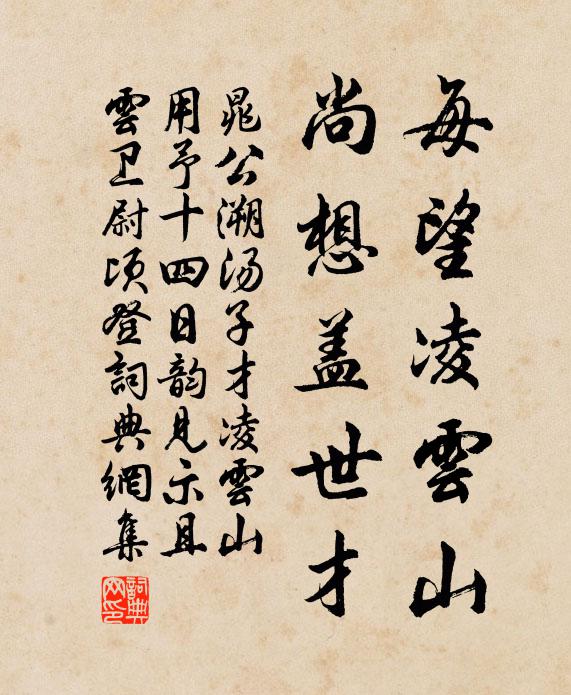 每望凌雲山
尚想盖世才
晁公溯汤子才凌雲山
用予十四日韵见示且
雲卫尉顷登詞典網集
詞典網印